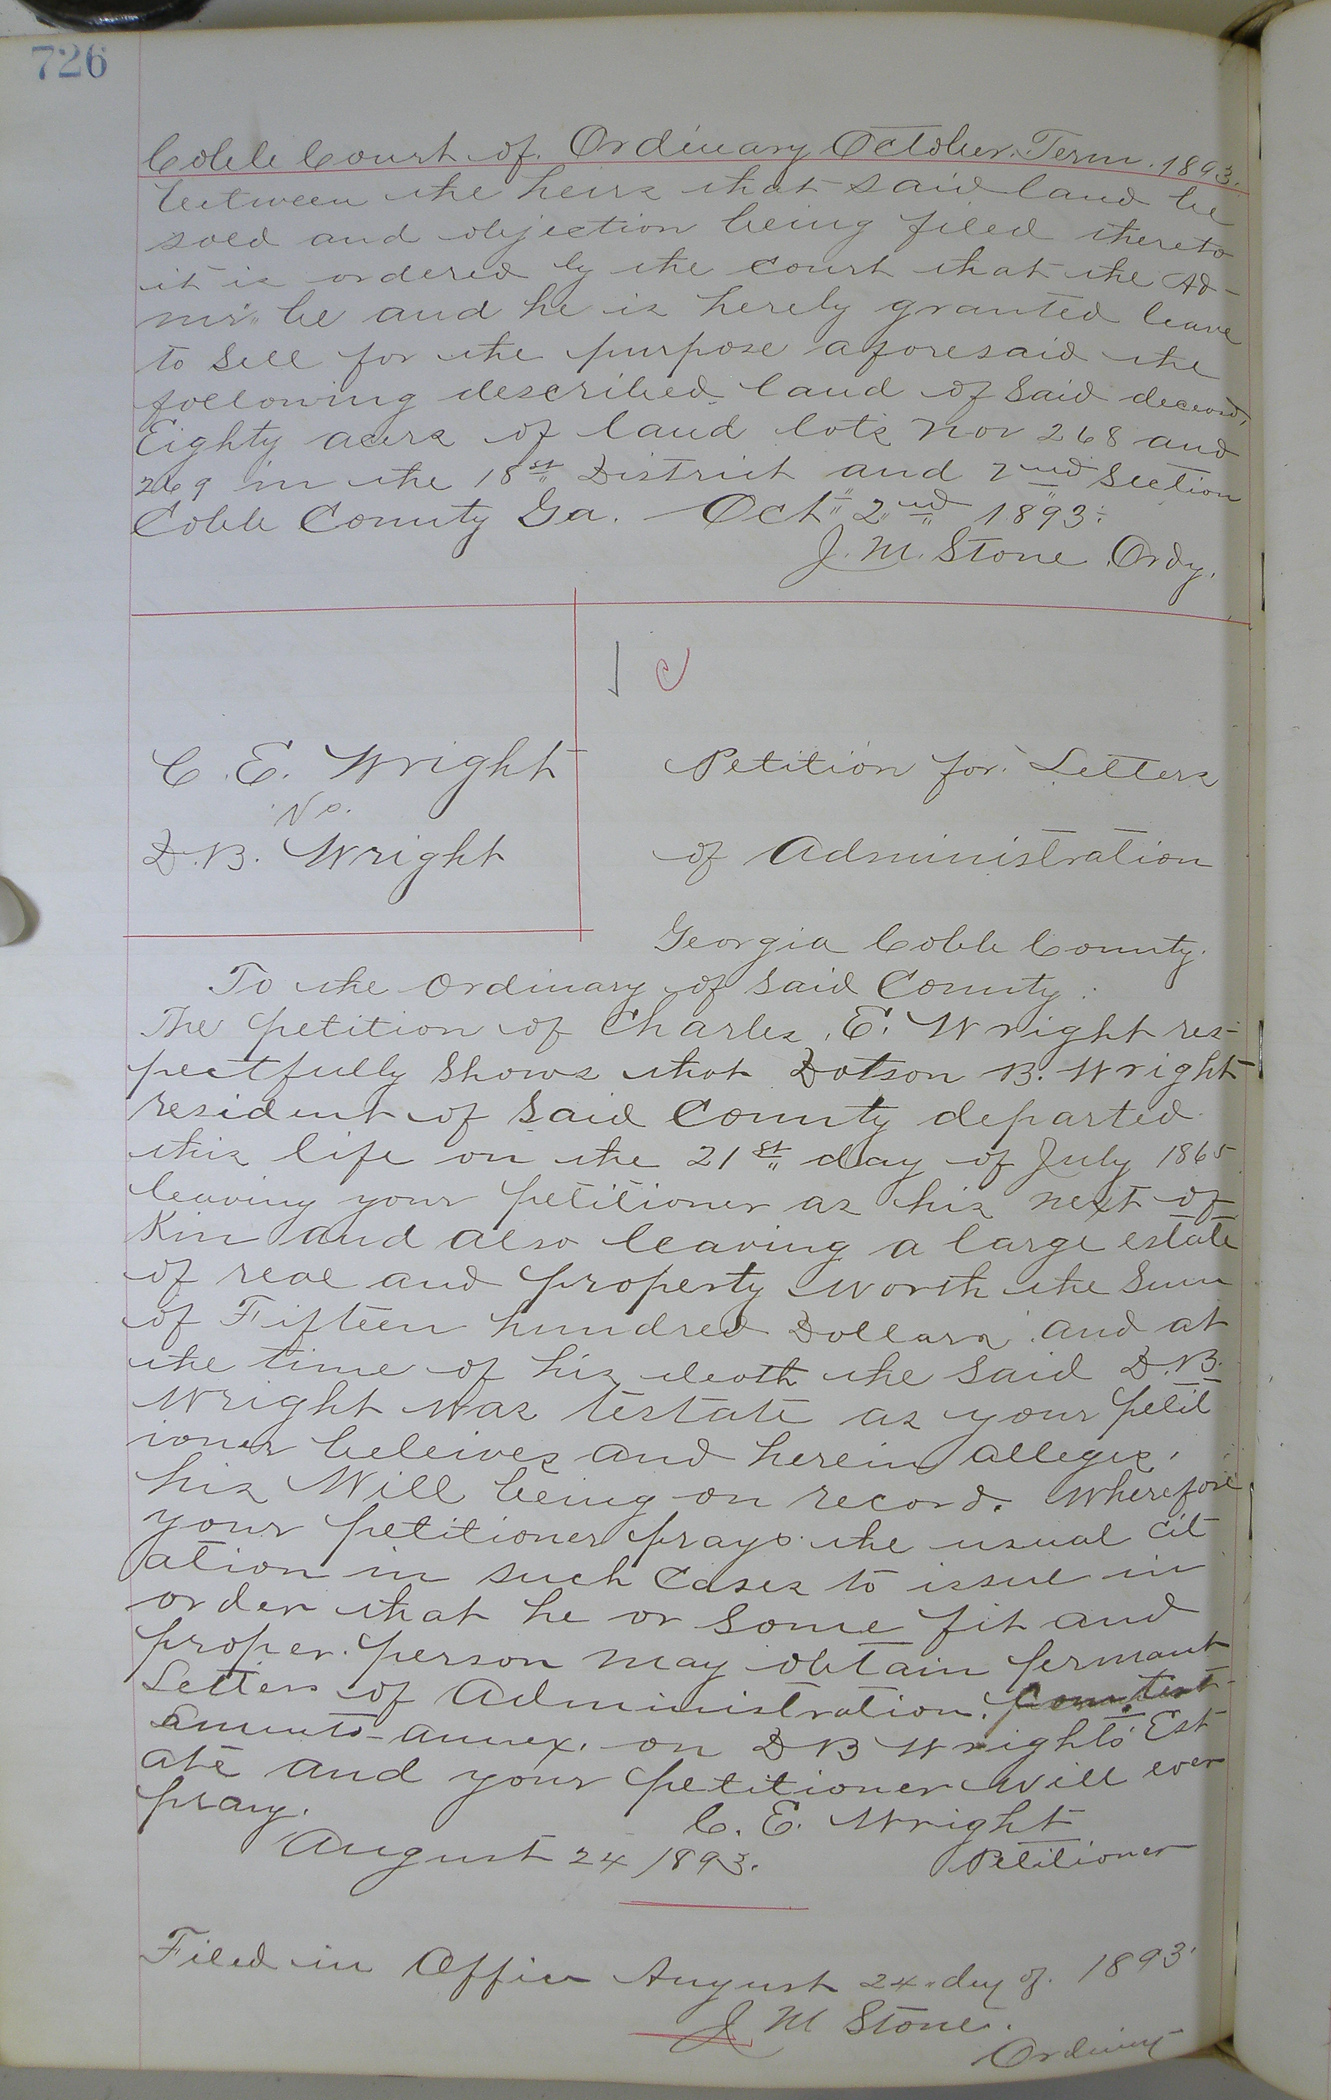 726
Cobb Court of Ordinary October Term. 1893.
between the heirs that said land be
sold and objection being filed thereto
it is ordered by the court that the Ad-
mr. be and he is hereby granted leave
to sell for the purpose aforesaid the
following described land of said deceasd,
Eighty acers of land lots Nor 268 and
269 in the 18st District and 2nd Section
Cobb County Ga. Oct 2nd 1893.
J. M. Stone Ordy.
C. E. Wright
Petition for Letters
vs.
D. B. Wright
of Administration
Georgia Cobb County.
To the Ordinary of said County:
The petition of Charles E. Wright res-
pectfully shows that Dotson B. Wright
resident of said County departed
this life on the 21st day of July 1865
leaving your petitioner as his next of
Kin and also leaving a large estate
of real and property worth the sum
of Fifteen hundred Dollars and at
the time of his death the said D. B.
Wright was testate as your petit
ioner beleives and herein alleges,
his Will being on record. Wherefore
your petitioner prays the usual cit
ation in such cases to issue in
order that he or some fit and
proper person may obtain permant
Letters of Administration. Com test-
amento annex. on D B Wright's Est
ate and your petitioner will ever
pray.
C. E. Wright
August 24 1893. Petitioner
Filed in Office August 24 day of 1893
J M Stone.
Ordinary